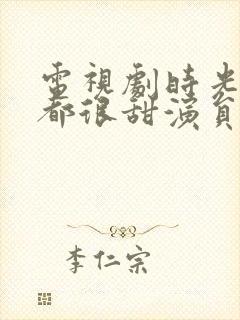 電視劇時光
都很甜演員
李仁宗